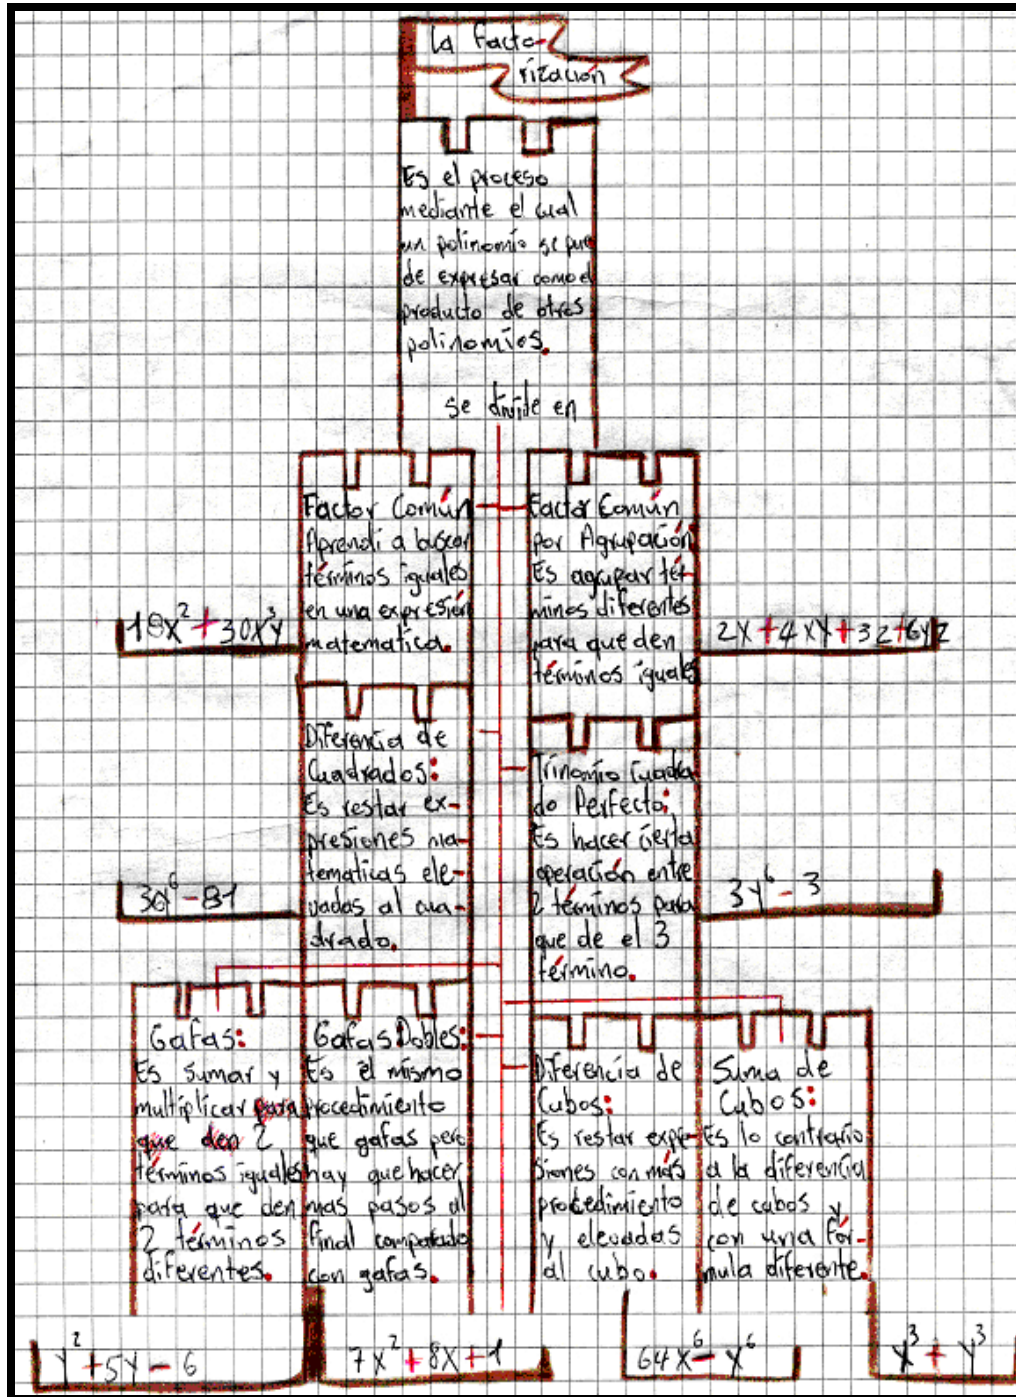 La Facto-
rización
Es el proceso
mediante el cual
un polinomio se pue
de expresar como el
producto de otros
polinomios.
se divide en
Factor Común
Aprendi a buscar
términos iguales
en una expresión
matematica.
18x² + 30x³y
Factor Común
por Agrupación
Es agrupar tér-
minos diferentes
para que den
términos iguales
2x + 4xy + 3z + 6yz
Diferencia de
Cuadrados:
Es restar ex-
presiones ma-
tematicas ele-
vadas al cua-
drado.
36y⁶ - 81
Trinomio Cuadra
do Perfecto:
Es hacer cierta
operación entre
2 términos para
que de el 3
término.
3y⁶ - 3
Gafas:
Es sumar y
multiplicar para
que den 2
términos iguales
para que den
2 términos
diferentes.
y² + 5y - 6
Gafas Dobles:
Es el mismo
procedimiento
que gafas pero
hay que hacer
mas pasos al
final comparado
con gafas.
7x² + 8x + 1
Diferencia de
Cubos:
Es restar expre-
siones con más
procedimiento
y elevadas
al cubo.
64x⁶ - y⁶
Suma de
Cubos:
Es lo contrario
a la diferencia
de cubos y
con una fór-
mula diferente.
x³ + y³